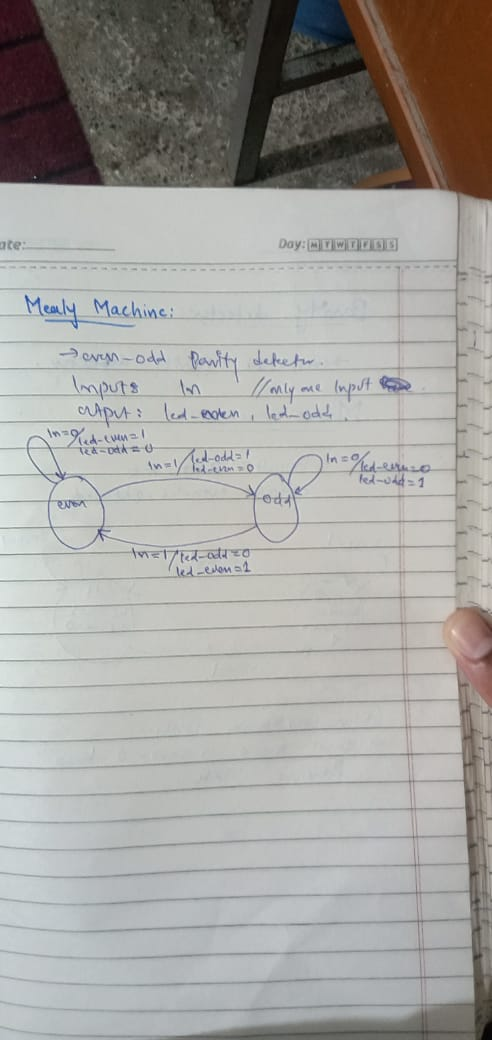 ate:
Day: M T W T F S S
Mealy Machine:
→ even-odd Parity detector.
Inputs In //only one Input
output: led-even, led-odd.
In=0/led-even=1
led-odd=0
In=1/led-odd=1
led-even=0
In=0/led-even=0
led-odd=1
even
odd
In=1/led-odd=0
led-even=1